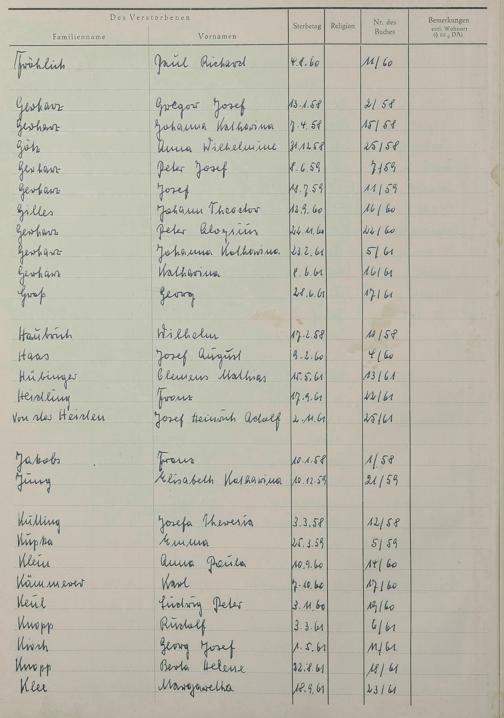 Des Verstorbenen
Familienname Vornamen Sterbetag Religion Nr. des Buches Bemerkungen evtl. Wohnort (§ 10,4 DA)
Fröhlich Paul Richard 4.8.60 11/60
Gerharz Gregor Josef 13.1.58 2/58
Gerharz Johanna Katharina 7.4.58 15/58
Götz Anna Wilhelmine 31.12.58 25/58
Gerharz Peter Josef 8.6.59 7/59
Gerharz Josef 18.7.59 11/59
Gilles Johann Theodor 12.9.60 16/60
Gerharz Peter Aloysius 26.11.60 22/60
Gerharz Johanna Katharina 23.2.61 5/61
Gerharz Katharina 8.6.61 16/61
Groß Georg 28.6.61 17/61
Haubrich Wilhelm 17.2.58 10/58
Haas Josef August 9.2.60 4/60
Hübinger Clemens Mathias 15.5.61 13/61
Heidling Franz 17.9.61 22/61
von der Heiden Josef Heinrich Adolf 2.11.61 25/61
Jakobs Franz 10.1.58 1/58
Jung Elisabeth Katharina 10.12.59 21/59
Külling Josefa Theresia 3.3.58 12/58
Kupka Emma 25.3.59 5/59
Klein Anna Paula 10.9.60 14/60
Kämmerer Karl 7.10.60 17/60
Keul Ludwig Peter 3.11.60 19/60
Knopp Rudolf 3.3.61 6/61
Kirch Georg Josef 1.5.61 11/61
Knopp Berta Helene 22.8.61 18/61
Klee Margaretha 18.9.61 23/61